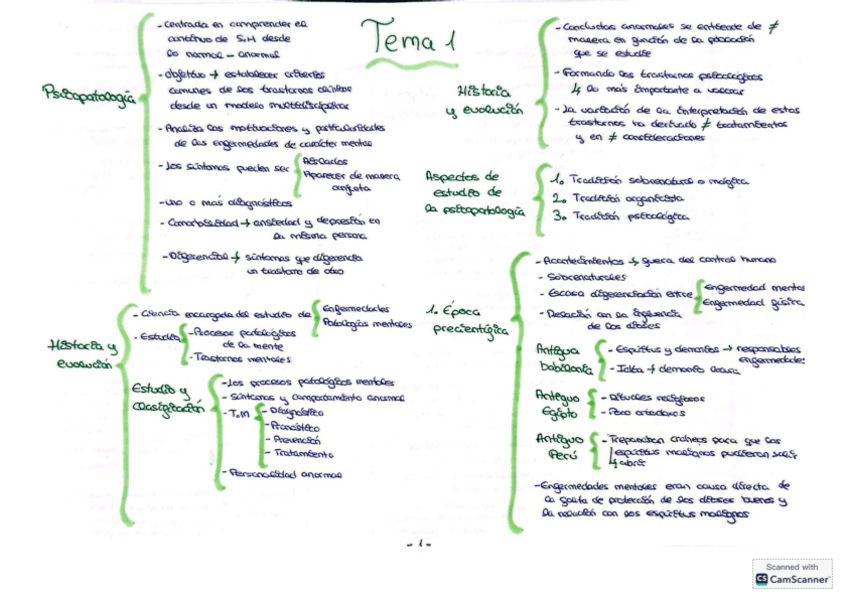 Tema 1
Psicopatología
- Centrada en comprender el
continuo de S.H desde
lo normal – anormal
- objetivo → establecer criterios
comunes de los trastornos clínicos
desde un modelo multidisciplinar
- Analiza las motivaciones y particularidades
de las enfermedades de carácter mental
- Los síntomas pueden ser
Aislados
Aparecer de manera
conjunta
- uno o más diagnósticos
- Comorbilidad → ansiedad y depresión en
la misma persona
- Diferencial → síntomas que diferencia
un trastorno de otro
Historia y
evolución
- Ciencia encargada del estudio de
Enfermedades
Patologías mentales
- Estudia
- Procesos patológicos
de la mente
- Trastornos mentales
Estudio y
clasificación
- Los procesos patológicos mentales
- Síntomas y comportamiento anormal
- T.M
- Diagnóstico
- Pronóstico
- Prevención
- Tratamiento
- Personalidad anormal
Historia
y evolución
- Conductas anormales se entiende de ≠
manera en función de la población
que se estudie
- Formando los trastornos psicológicos
↳ lo más importante a valorar
- La variación de la interpretación de estos
trastornos ha derivado ≠ tratamientos
y en ≠ consideraciones
Aspectos de
estudio de
la psicopatología
1. Tradición sobrenatural o mágica
2. Tradición organicista
3. Tradición psicológica
1. Época
precientífica
- Acontecimientos → fuera del control humano
- Sobrenaturales
- Escasa diferenciación entre
Enfermedad mental
Enfermedad física
- Relación con la influencia
de los dioses
Antigua
babilonia
- Espíritus y demonios → responsables
enfermedades
- Idta → demonio locura
Antiguo
Egipto
- Rituales religiosos
- Poco ortodoxos
Antiguo
Perú
- Trepanaban cráneos para que los
espíritus malignos pudieran salir
↳ abrir
- Enfermedades mentales eran causa directa de
la falta de protección de los dioses buenos y
la relación con los espíritus malignos
- 1 -
Scanned with
CS CamScanner